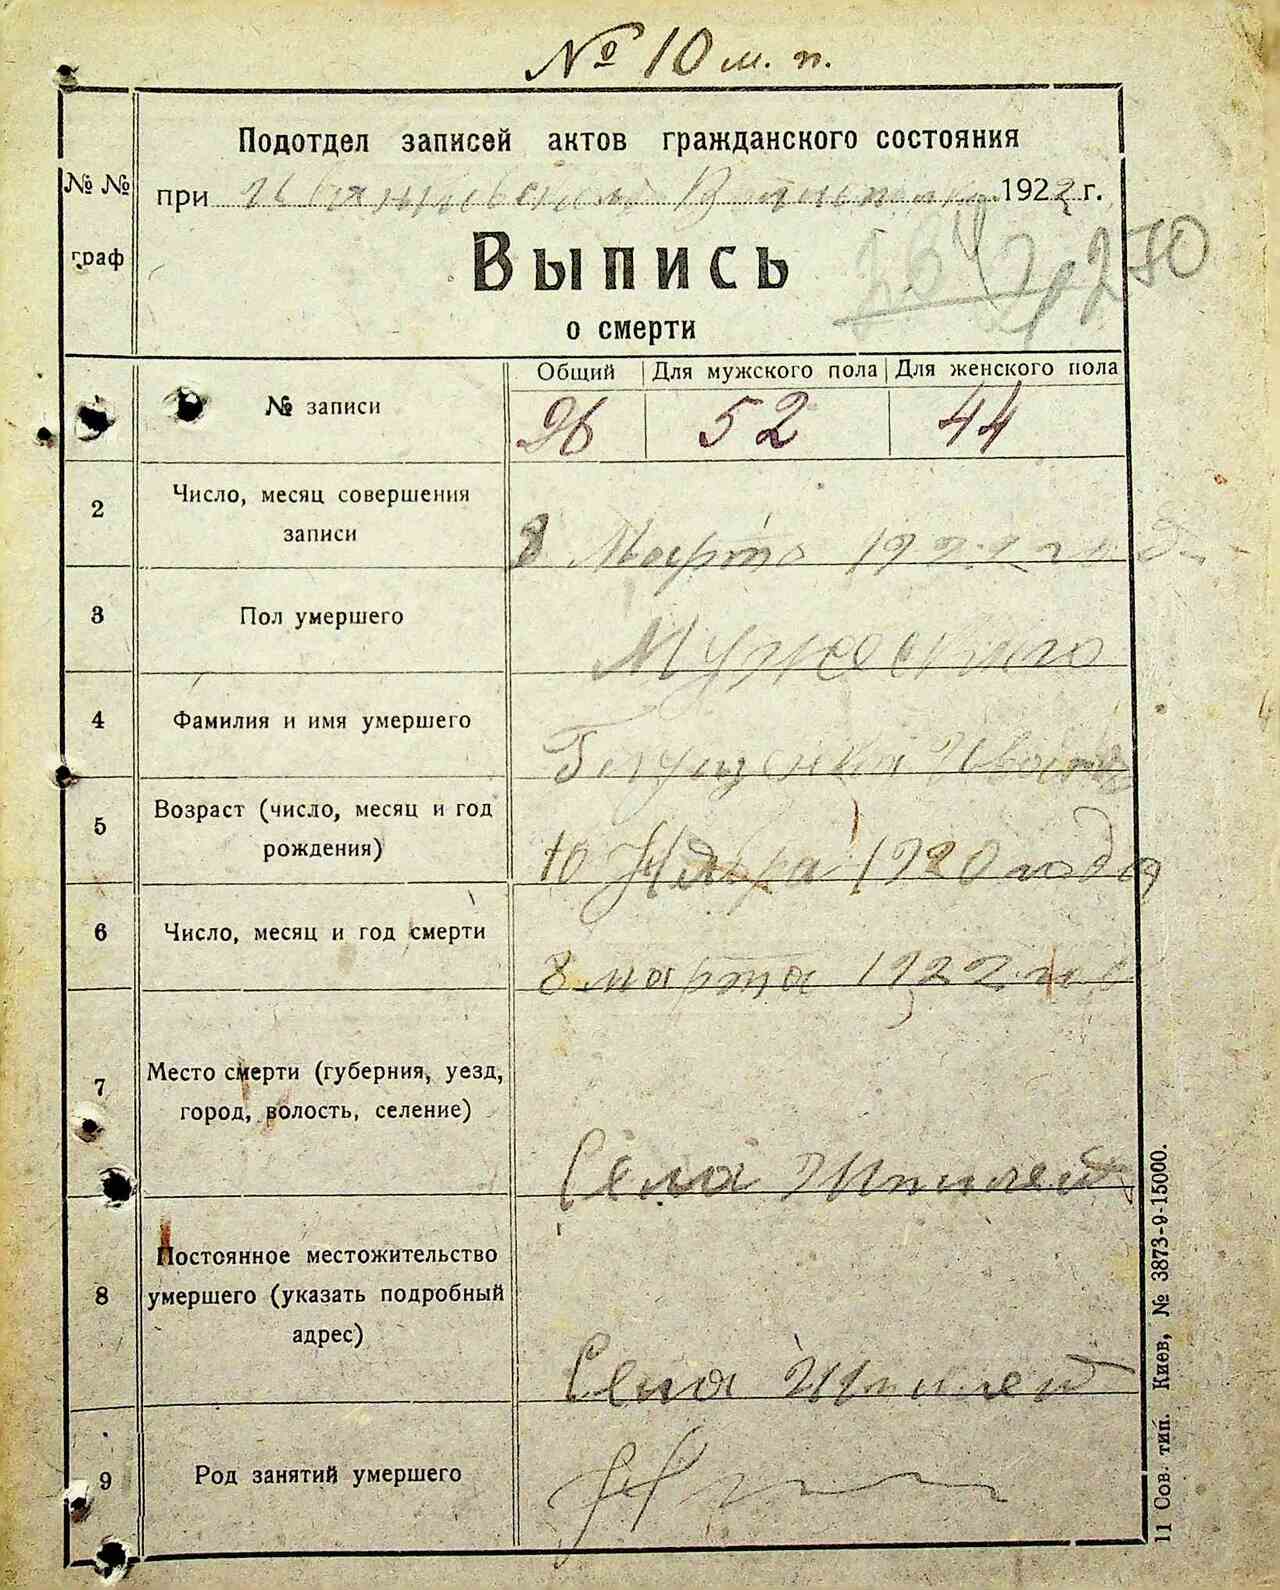 № 10 м. п.
Подотдел записей актов гражданского состояния
№ №
при 1922 г.
граф
Выпись
270
о смерти
Общий Для мужского пола Для женского пола
№ записи
96 52 44
2 Число, месяц совершения
записи
8 Марта 1922 год
3 Пол умершего
Мужеского
4 Фамилия и имя умершего
5 Возраст (число, месяц и год
рождения)
10 1920 года
6 Число, месяц и год смерти
8 марта 1922
7 Место смерти (губерния, уезд,
город, волость, селение)
Села Шпилей
8 Постоянное местожительство
умершего (указать подробный
адрес)
Села Шпилей
9 Род занятий умершего
11 Сов. тип. Киев, № 3873-9-15000.